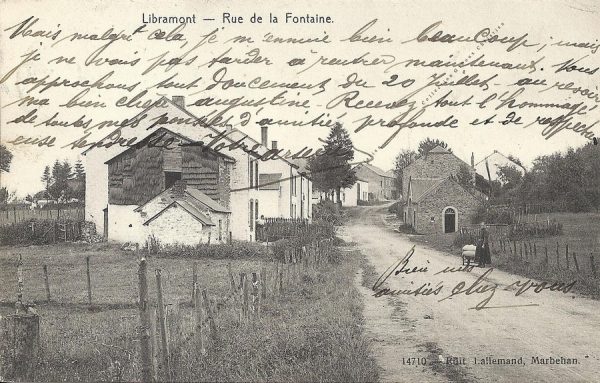 Libramont — Rue de la Fontaine.
Mais malgré cela, je m'ennuie bien beaucoup; mais
je ne vais pas tarder à rentrer maintenant. Nous
approchons tout doucement du 20 Juillet - au revoir
ma bien chère augustine. Recevez tout l'hommage
de toutes mes pensées d'amitiés profonde et de
Bien mes
amitiés chez vous
14710 — Edit. Lallemand, Marbehan.